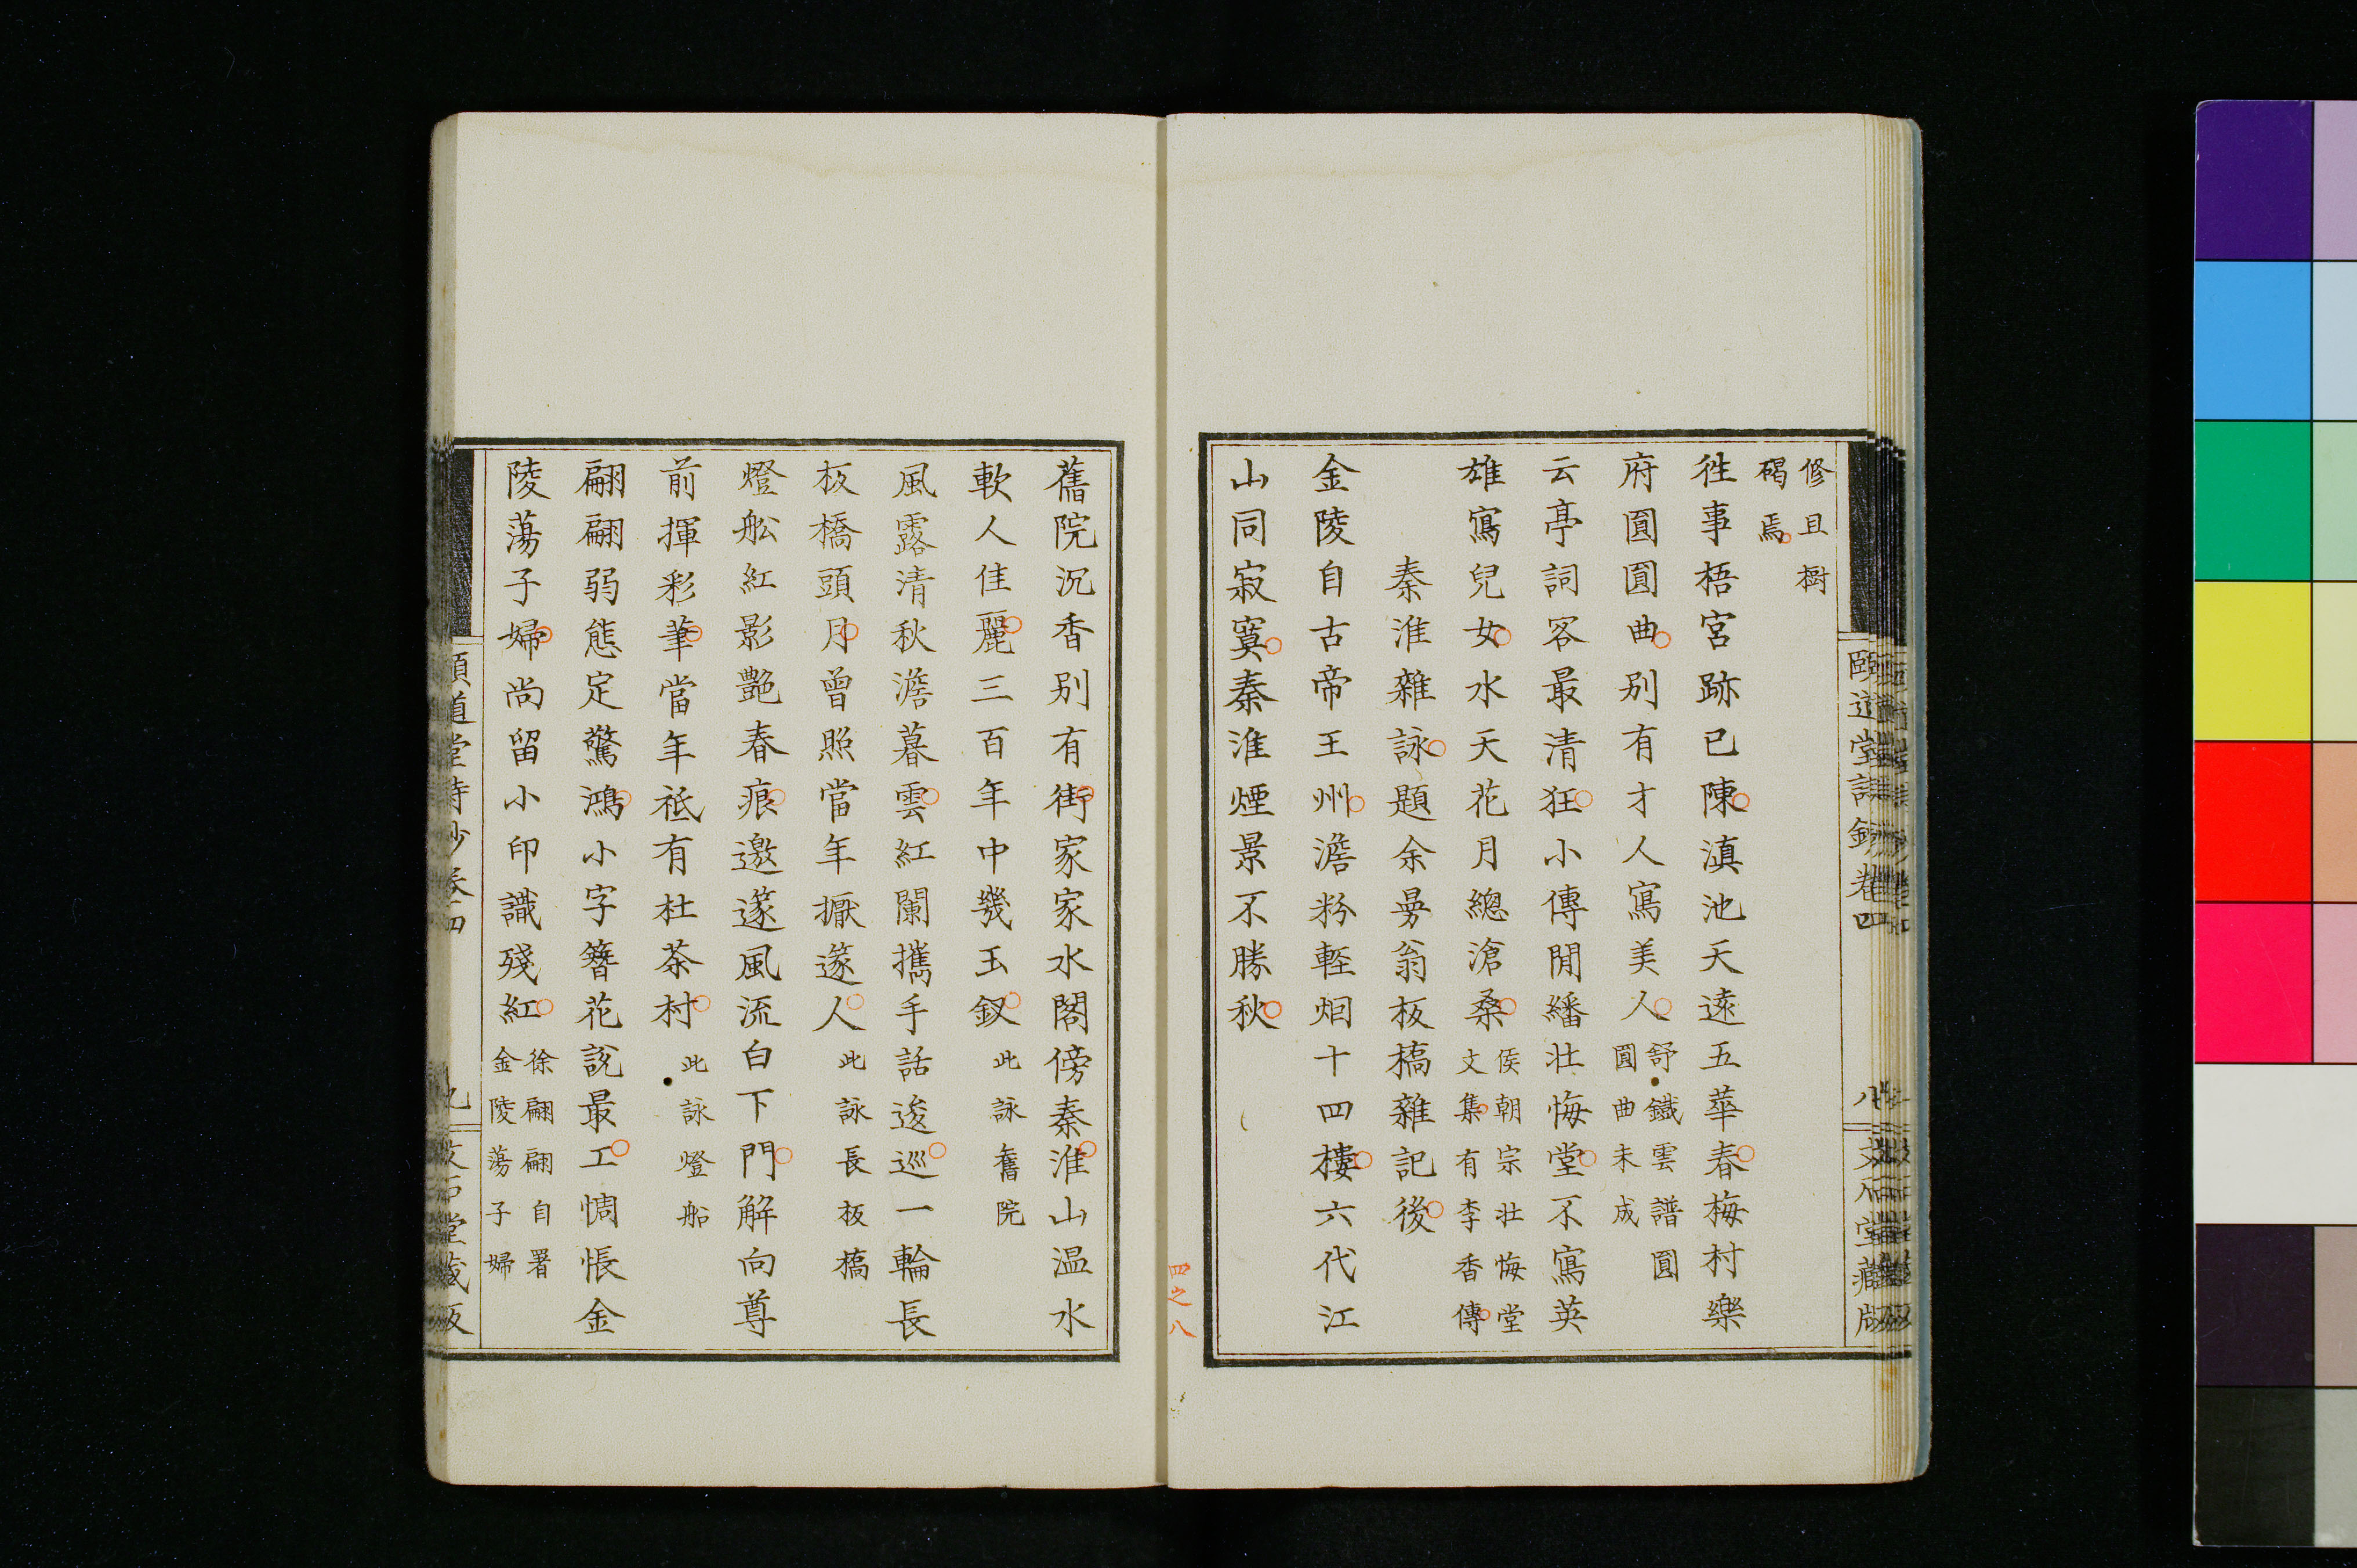 修且樹
碣焉
徃事梧宮跡已陳滇池天遠五華春梅村樂
府圓圓曲別有才人寫美人舒鐵雲譜圓
圓曲未成
云亭詞客最清狂小傳閒繙壮悔堂不寫英
雄寫兒女水天花月總滄桑侯朝宗壮悔堂
文集有李香傳
秦淮雜詠題余曼翁板橋雜記後
金陵自古帝王州澹粉輕烟十四樓六代江
山同寂寞秦淮煙景不勝秋
頤道堂詩鈔卷四
八
文石堂藏版
四之八
舊院沉香別有街家家水閣傍秦淮山温水
軟人佳麗三百年中幾玉釵此詠舊院
風露清秋澹暮雲紅闌攜手話逡巡一輪長
板橋頭月曾照當年擫篴人此詠長板橋
燈舩紅影艷春痕邀篴風流白下門解向尊
前揮彩筆當年袛有杜茶村此詠燈船
翩翩弱態定驚鴻小字簪花説最工惆悵金
陵蕩子婦尚留小印識殘紅徐翩翩自署
金陵蕩子婦
頤道堂詩鈔卷四
九
文石堂藏版